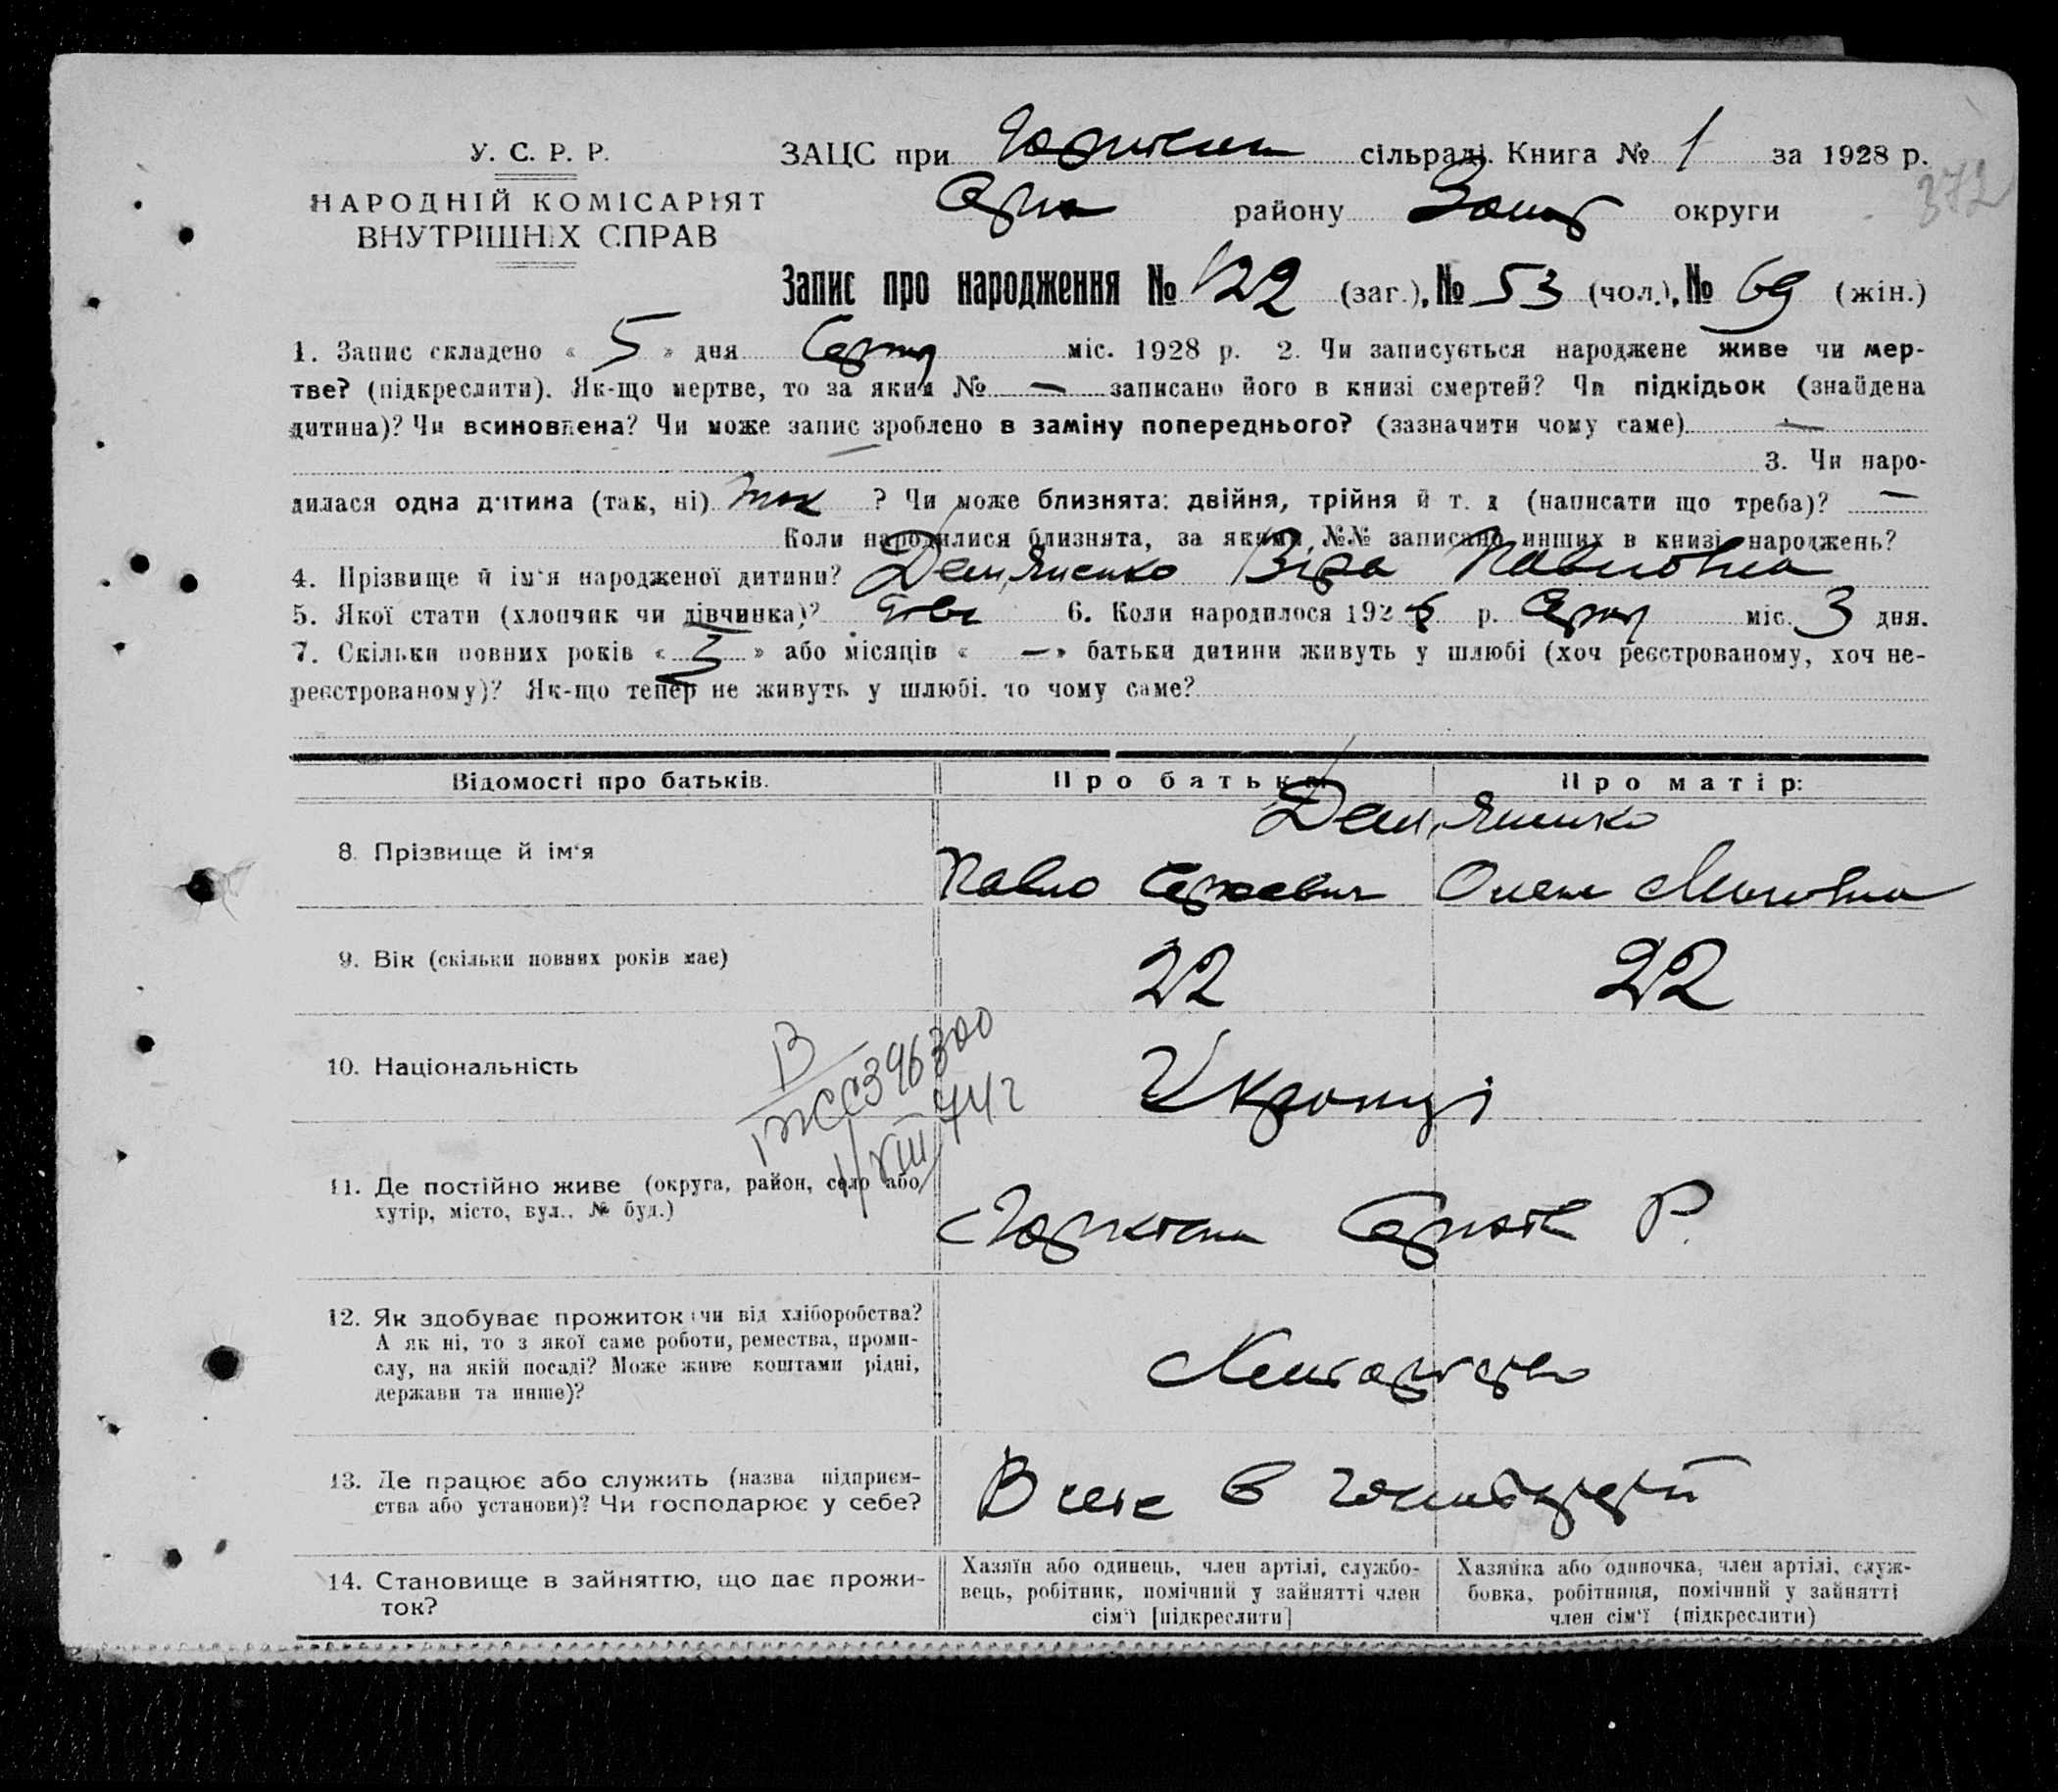 У. С. Р. Р.
НАРОДНІЙ КОМІСАРІЯТ
ВНУТРІШНІХ СПРАВ
ЗАЦС при сільраді. Книга № 1 за 1928 р.
372
району округи
Запис про народження № 122 (заг.), № 53 (чол.), № 69 (жін.)
1. Запис складено « 5 » дня міс. 1928 р. 2. Чи записується народжене живе чи мер-
тве? (підкреслити). Як-що мертве, то за яким № — записано його в книзі смертей? Чи підкідьок (знайдена
дитина)? Чи всиновлена? Чи може запис зроблено в заміну попереднього? (зазначити чому саме) —
3. Чи наро-
дилася одна дитина (так, ні) так ? Чи може близнята: двійня, трійня й т. д (написати що треба)? —
Коли народилися близнята, за якими №№ записано инших в книзі народжень?
4. Прізвище й ім'я народженої дитини? Дем'яненко Віра Павловна
5. Якої стати (хлопчик чи дівчинка)? 6. Коли народилося 1928 р. міс. 3 дня.
7. Скільки повних років « 3 » або місяців « — » батьки дитини живуть у шлюбі (хоч реєстрованому, хоч не-
реєстрованому)? Як-що тепер не живуть у шлюбі, то чому саме?
Відомості про батьків. Про батька Про матір:
Дем'яненко
8. Прізвище й ім'я Павло Сергеевич Олена
9. Вік (скільки повних років має) 22 22
10. Національність Украинці
11. Де постійно живе (округа, район, село або
хутір, місто, вул., № буд.) Р.
12. Як здобуває прожиток: чи від хліборобства?
А як ні, то з якої саме роботи, ремества, проми-
слу, на якій посаді? Може живе коштами рідні,
держави та инше)?
13. Де працює або служить (назва підприєм-
ства або установи)? Чи господарює у себе?
14. Становище в зайняттю, що дає прожи-
ток?
Хазяїн або одинець, член артілі, службо-
вець, робітник, помічний у зайнятті член
сім'ї [підкреслити]
Хазяйка або одиночка, член артілі, служ-
бовка, робітниця, помічний у зайнятті
член сім'ї (підкреслити)